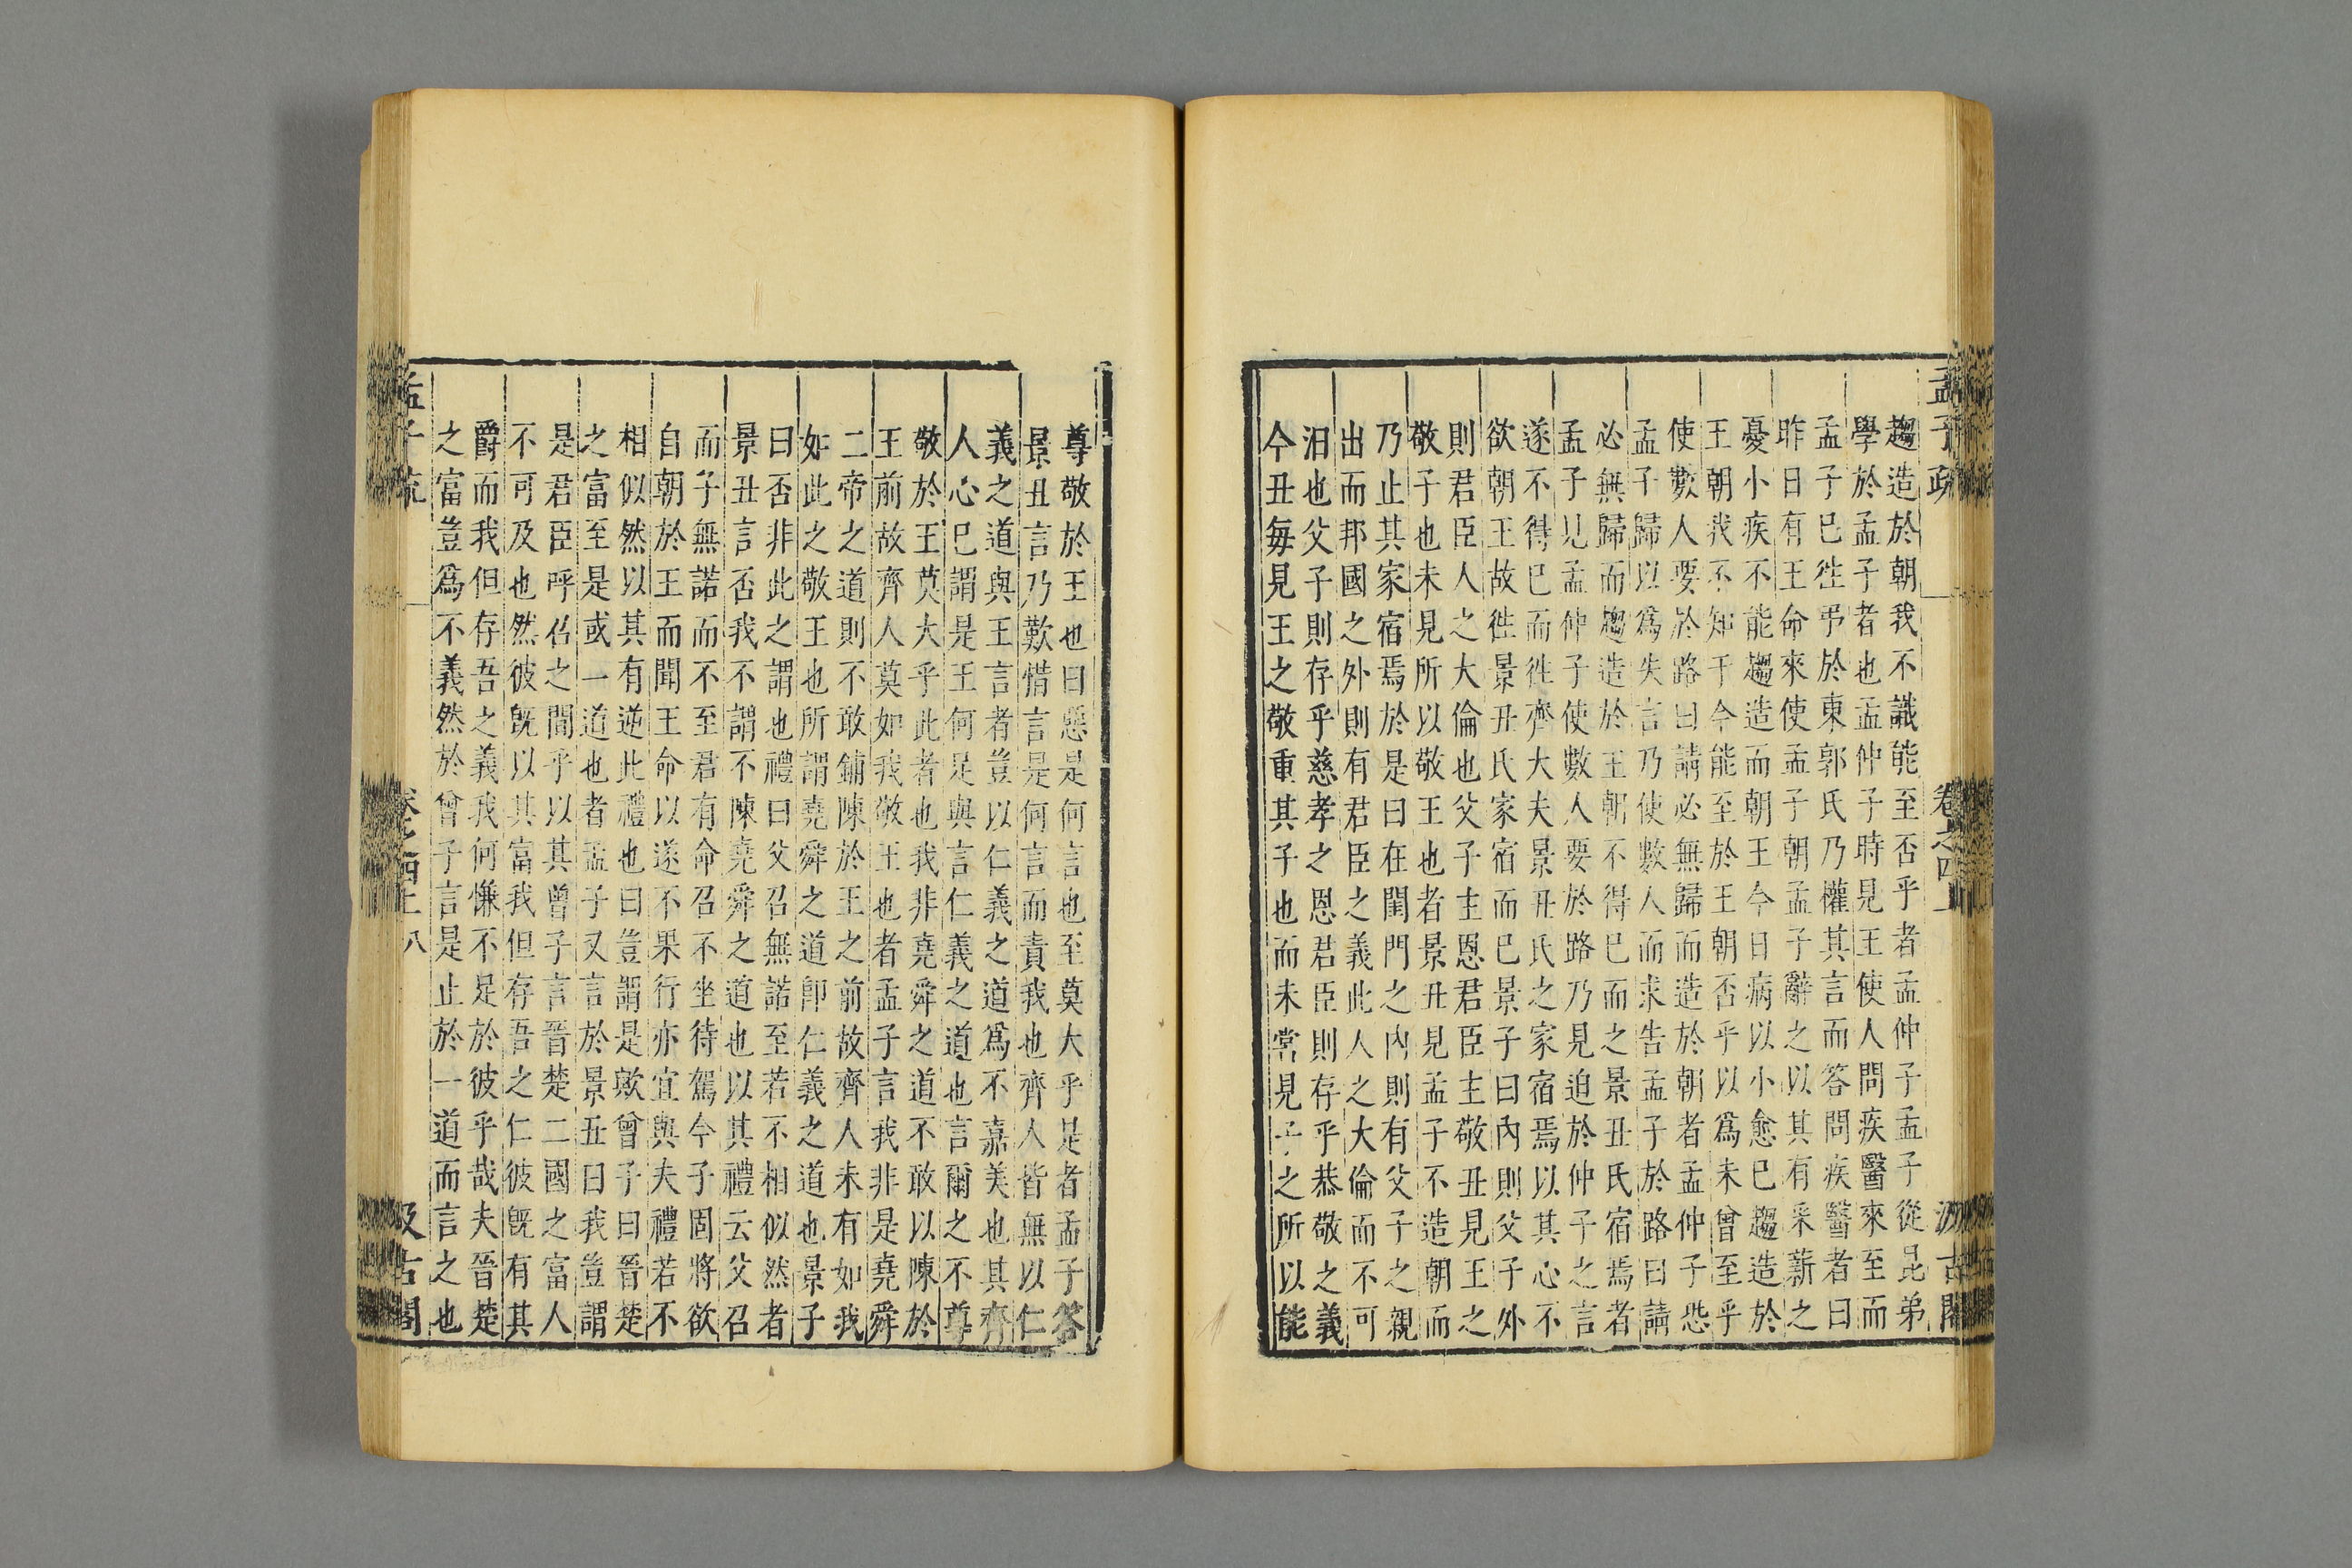 孟子疏
卷之四上
汲古閣
趨造於朝我不識能至否乎者孟仲子孟子從昆弟
學於孟子者也孟仲子時見王使人問疾醫來至而
孟子已徃弔於東郭氏乃權其言而答問疾醫者曰
昨日有王命來使孟子朝孟子辭之以其有采薪之
憂小疾不能趨造而朝王今日病以小愈已趨造於
王朝我不知于今能至於王朝否乎以爲未曾至乎
使數人要於路曰請必無歸而造於朝者孟仲子恐
孟子歸以爲失言乃使數人而求告孟子於路曰請
必無歸而趨造於王朝不得已而之景丑氏宿焉者
孟子見孟仲子使數人要於路乃見迫於仲子之言
遂不得已而徃齊大夫景丑氏之家宿焉以其心不
欲朝王故徃景丑氏家宿而已景子曰內則父子外
則君臣人之大倫也父子主恩君臣主敬丑見王之
敬子也未見所以敬王也者景丑見孟子不造朝而
乃止其家宿焉於是曰在閨門之內則有父子之親
出而邦國之外則有君臣之義此人之大倫而不可
汨也父子則存乎慈孝之恩君臣則存乎恭敬之義
今丑毎見王之敬重其子也而未嘗見子之所以能
尊敬於王也曰惡是何言也至莫大乎是者孟子答
景丑言乃歎惜言是何言而責我也齊人皆無以仁
義之道與王言者豈以仁義之道爲不嘉美也其齊
人心已謂是王何足與言仁義之道也言爾之不尊
敬於王莫大乎此者也我非堯舜之道不敢以陳於
王前故齊人莫如我敬王也者孟子言我非是堯舜
二帝之道則不敢鋪陳於王之前故齊人未有如我
如此之敬王也所謂堯舜之道卽仁義之道也景子
曰否非此之謂也禮曰父召無諾至若不相似然者
景丑言否我不謂不陳堯舜之道也以其禮云父召
而子無諾而不至君有命召不坐待駕今子固將欲
自朝於王而聞王命以遂不果行亦宜與夫禮若不
相似然以其有逆此禮也曰豈謂是歟曾子曰晉楚
之富至是或一道也者孟子又言於景丑曰我豈謂
是君臣呼召之間乎以其曾子言晉楚二國之富人
不可及也然彼旣以其富我但存吾之仁彼旣有其
爵而我但存吾之義我何慊不足於彼乎哉夫晉楚
之富豈爲不義然於曾子言是止於一道而言之也
孟子疏
卷之四上
八
汲古閣